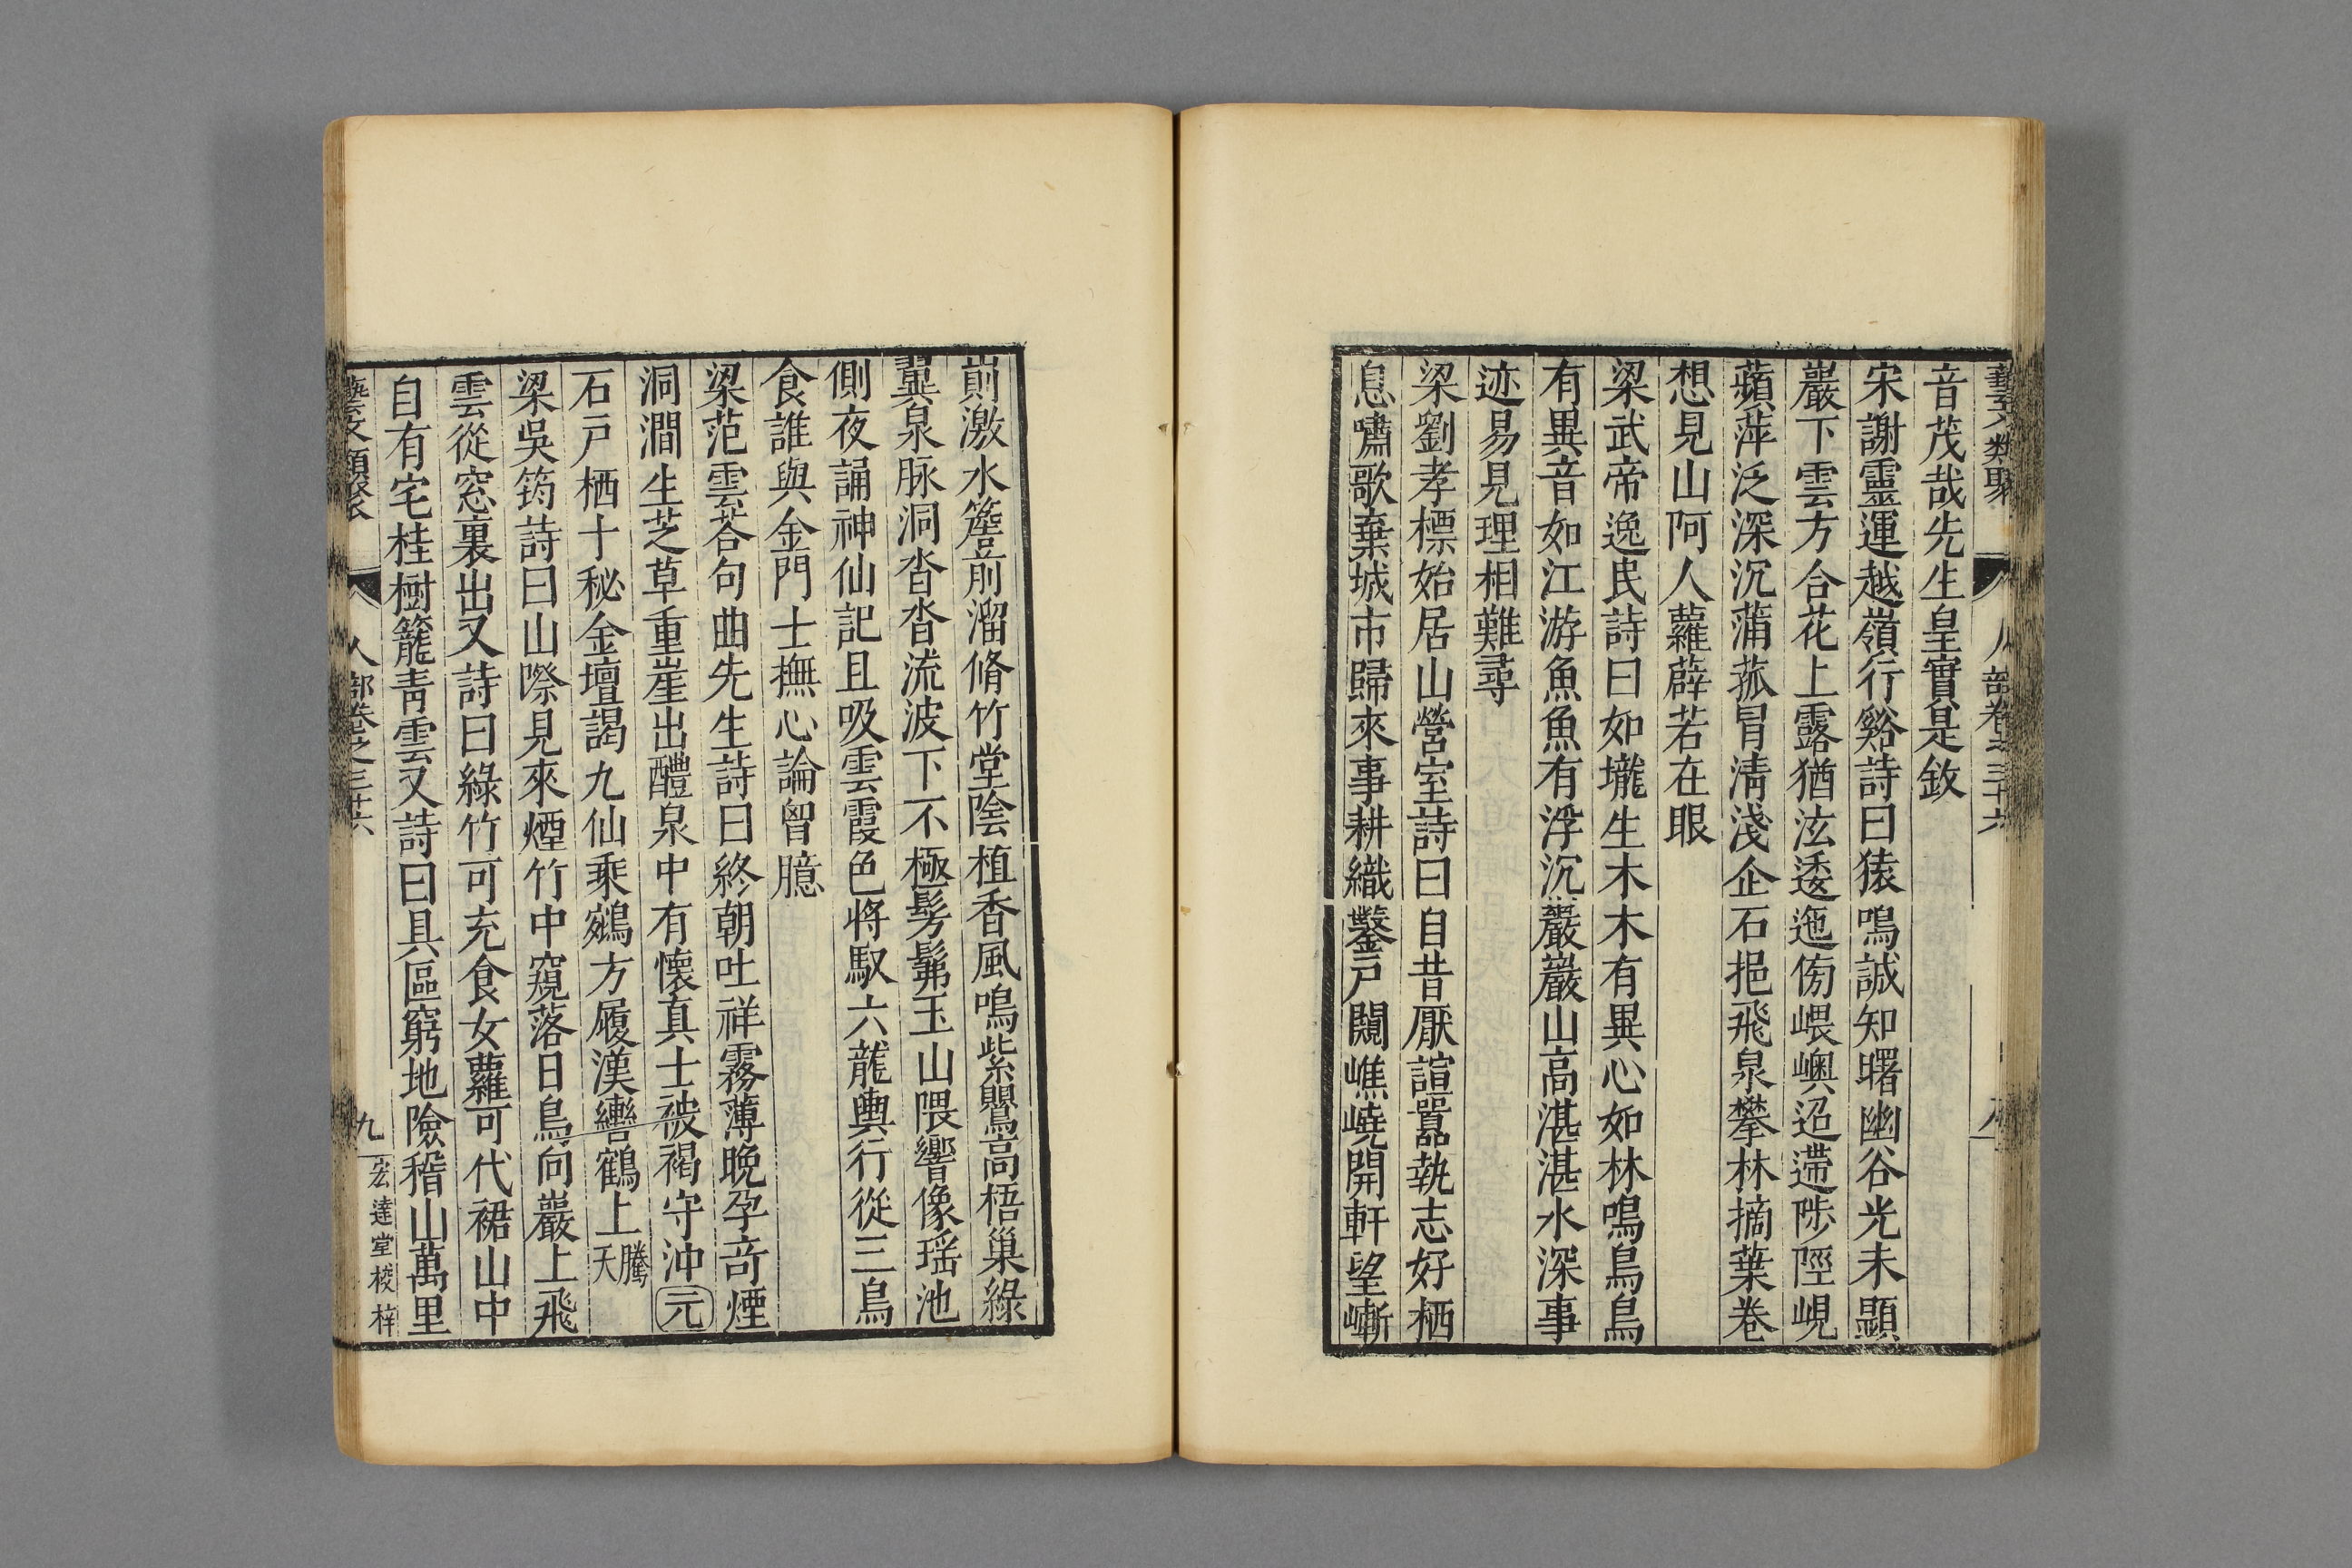 藝文類聚 人部卷之三十六 八
音茂哉先生皇實是敘
宋謝靈運越嶺行谿詩曰猿鳴誠知曙幽谷光未顯
巖下雲方合花上露猶泫逶迤傍隈嶼迢遰陟陘峴
蘋萍泛深沉蒲菰冒清淺企石挹飛泉攀林摘葉卷
想見山阿人蘿薜若在眼
梁武帝逸民詩曰如壠生木木有異心如林鳴鳥鳥
有異音如江游魚魚有浮沉巖巖山高湛湛水深事
迹易見理相難尋
梁劉孝標始居山營室詩曰自昔厭諠囂執志好栖
息嘯歌棄城市歸來事耕織鑿戶闚嶕嶢開軒望嶄
崱激水簷前溜脩竹堂陰植香風鳴紫鸎高梧巢綠
翼泉脉洞杳杳流波下不極髣髴玉山隈響像瑶池
側夜誦神仙記且吸雲霞色將馭六龍輿行從三鳥
食誰與金門士撫心論曾臆
梁范雲荅句曲先生詩曰終朝吐祥霧薄晚孕竒煙
洞澗生芝草重崖出醴泉中有懷真士被褐守沖元
石戸栖十秘金壇謁九仙乘鵷方履漢轡鶴上騰天
梁吳筠詩曰山際見來煙竹中窺落日鳥向巖上飛
雲從窓裏出又詩曰綠竹可充食女蘿可代裙山中
自有宅桂樹籠青雲又詩曰具區窮地險稽山萬里
藝文類聚 人部卷之三十六 九 宏達堂校梓